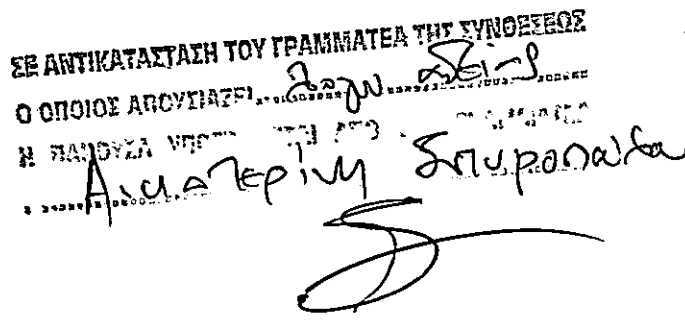 ΣΕ ΑΝΤΙΚΑΤΑΣΤΑΣΗ ΤΟΥ ΓΡΑΜΜΑΤΕΑ ΤΗΣ ΣΥΝΘΕΣΕΩΣ
Ο ΟΠΟΙΟΣ ΑΠΟΥΣΙΑΖΕΙ λόγω αδείας
Η ΠΑΡΟΥΣΑ ΥΠΟΓΡΑΦΕΤΑΙ ΑΠΟ
Αικατερίνη Σπυροπούλου